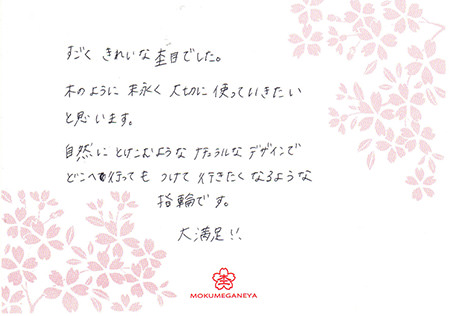 すごく きれいな 杢目でした。
木のように 末永く 大切に 使っていきたい
と思います。
自然に とけこむような ナチュラルな デザインで
どこへ行っても つけて 行きたく なるような
指輪です。
大満足!!
MOKUMEGANEYA